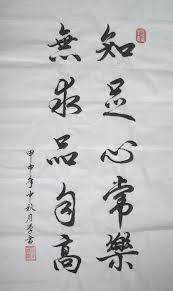 知足心常樂
無求品自高
甲申年中秋月書